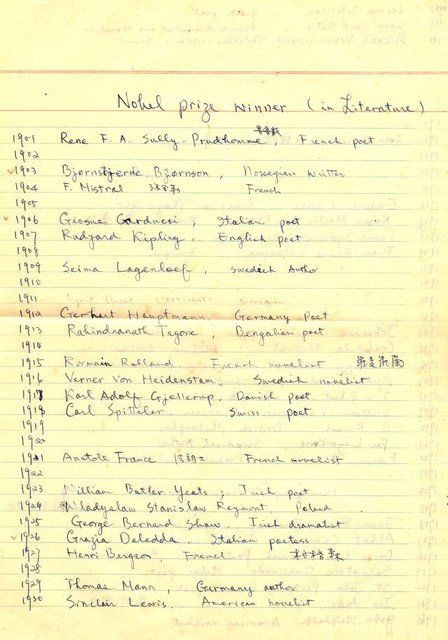 Nobel prize winner (in Literature)
1901 Rene F. A. Sully-Prudhomme, French poet
1902
1903 Bjornstjerne Bjørnson, Norwegian writer
1904 F. Mistral French
1905
1906 Giosue Carducci, Italian poet
1907 Rudyard Kipling, English poet
1908
1909 Selma Lagenloef, Swedish Author
1910
1911
1912 Gerhart Hauptmann, Germany Poet
1913 Rabindranath Tagore, Bengalian poet
1914
1915 Romain Rolland French novelist
1916 Verner von Heidenstam, Swedish novelist
1917 Karl Adolf Gjellerup, Danish poet
1918 Carl Spitteler, Swiss poet
1919
1920
1921 Anatole France French novelist
1922
1923 William Butler Yeats, Irish poet
1924 Wladyslaw Stanislaw Reymont, Poland
1925 George Bernard Shaw, Irish dramatist
1926 Grazia Deledda, Italian poetess
1927 Henri Bergson, French
1928
1929 Thomas Mann, Germany author
1930 Sinclair Lewis, American novelist